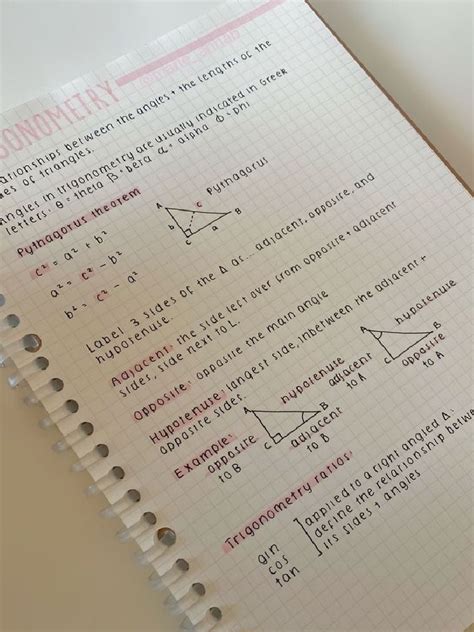 GONOMETRY
ationships between the angles + the lengths of the
es of triangles.
Angles in trigonometry are usually indicated in Greek
letters. θ = theta β = beta α = alpha Φ = phi
Pythagorus theorem
c² = a² + b²
a² = c² - b²
b² = c² - a²
Pythagorus
A
c
B
b
a
C
Label 3 sides of the Δ as... adjacent, opposite, and
hypotenuse.
Adjacent: the side left over from opposite + adjacent
sides, side next to L.
Opposite: opposite the main angle
Hypotenuse: largest side, inbetween the adjacent +
opposite sides.
Example:
A
hypotenuse
B
opposite
to B
C
adjacent
to B
A
hypotenuse
B
adjacent
to A
C
opposite
to A
Trigonometry ratios
sin
cos
tan
applied to a right angled Δ.
define the relationship betwe
its sides + angles